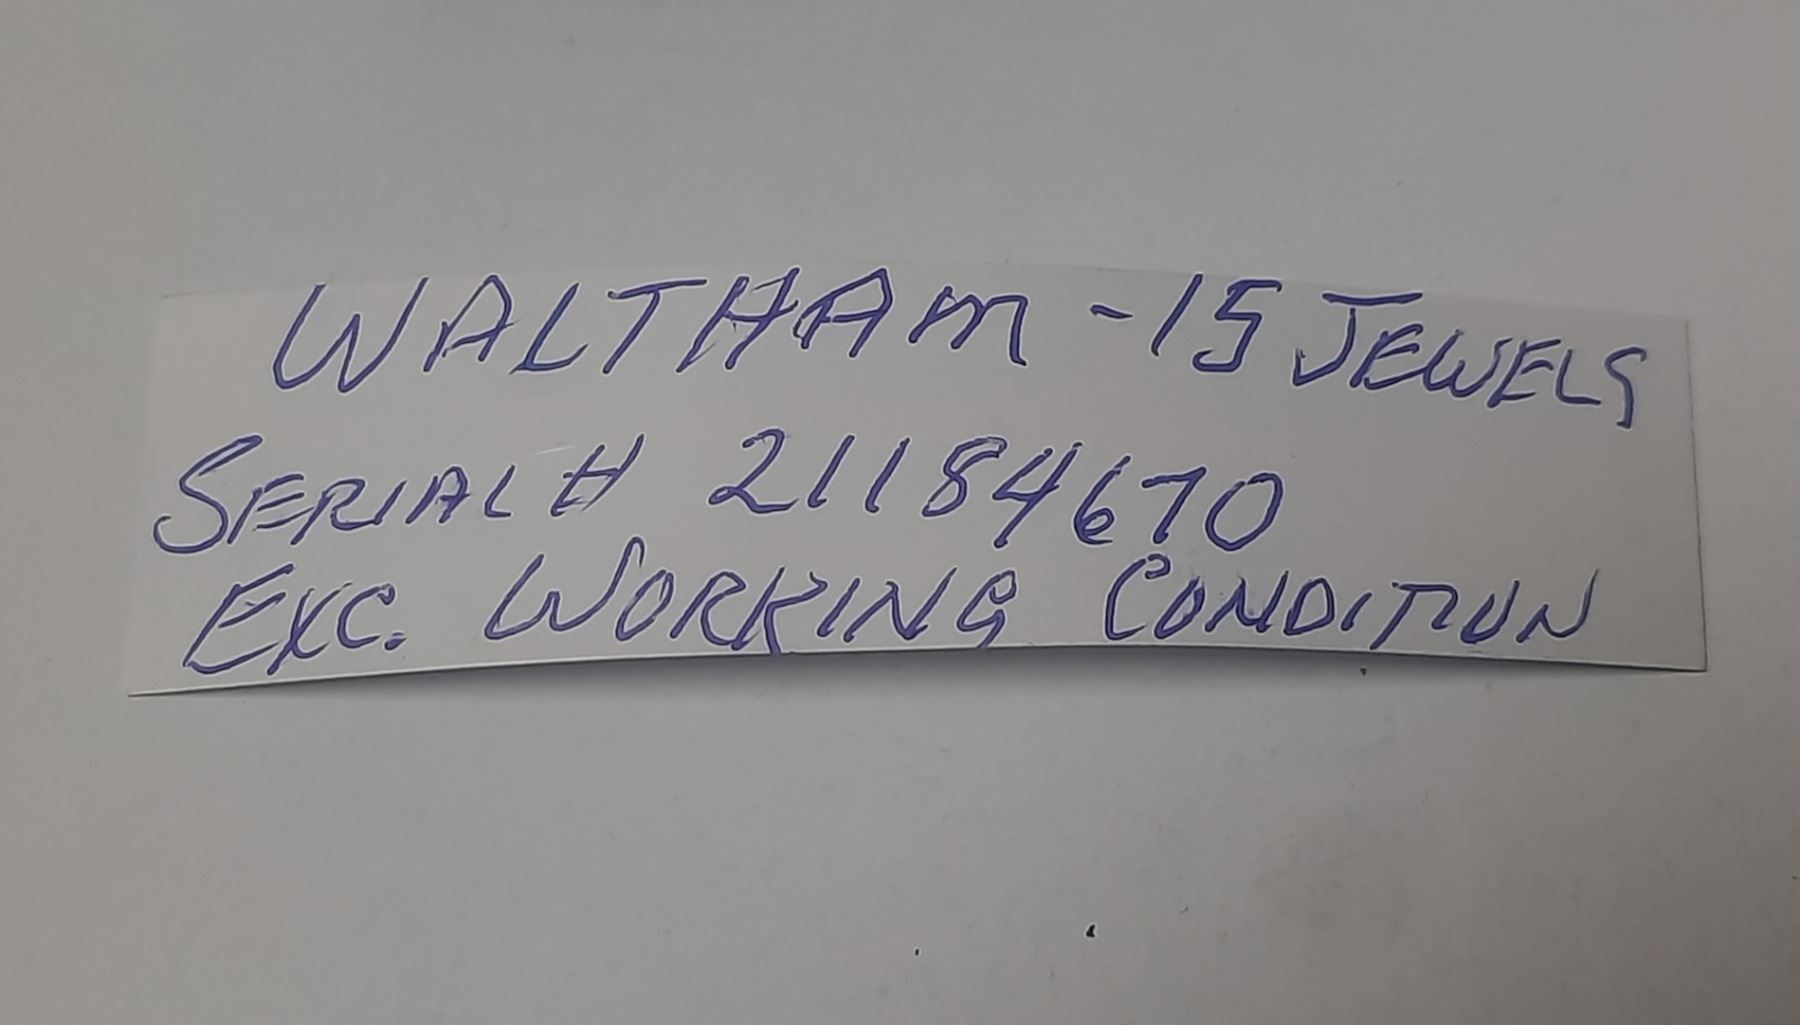 WALTHAM - 15 JEWELS
SERIAL # 21184670
EXC. WORKING CONDITION